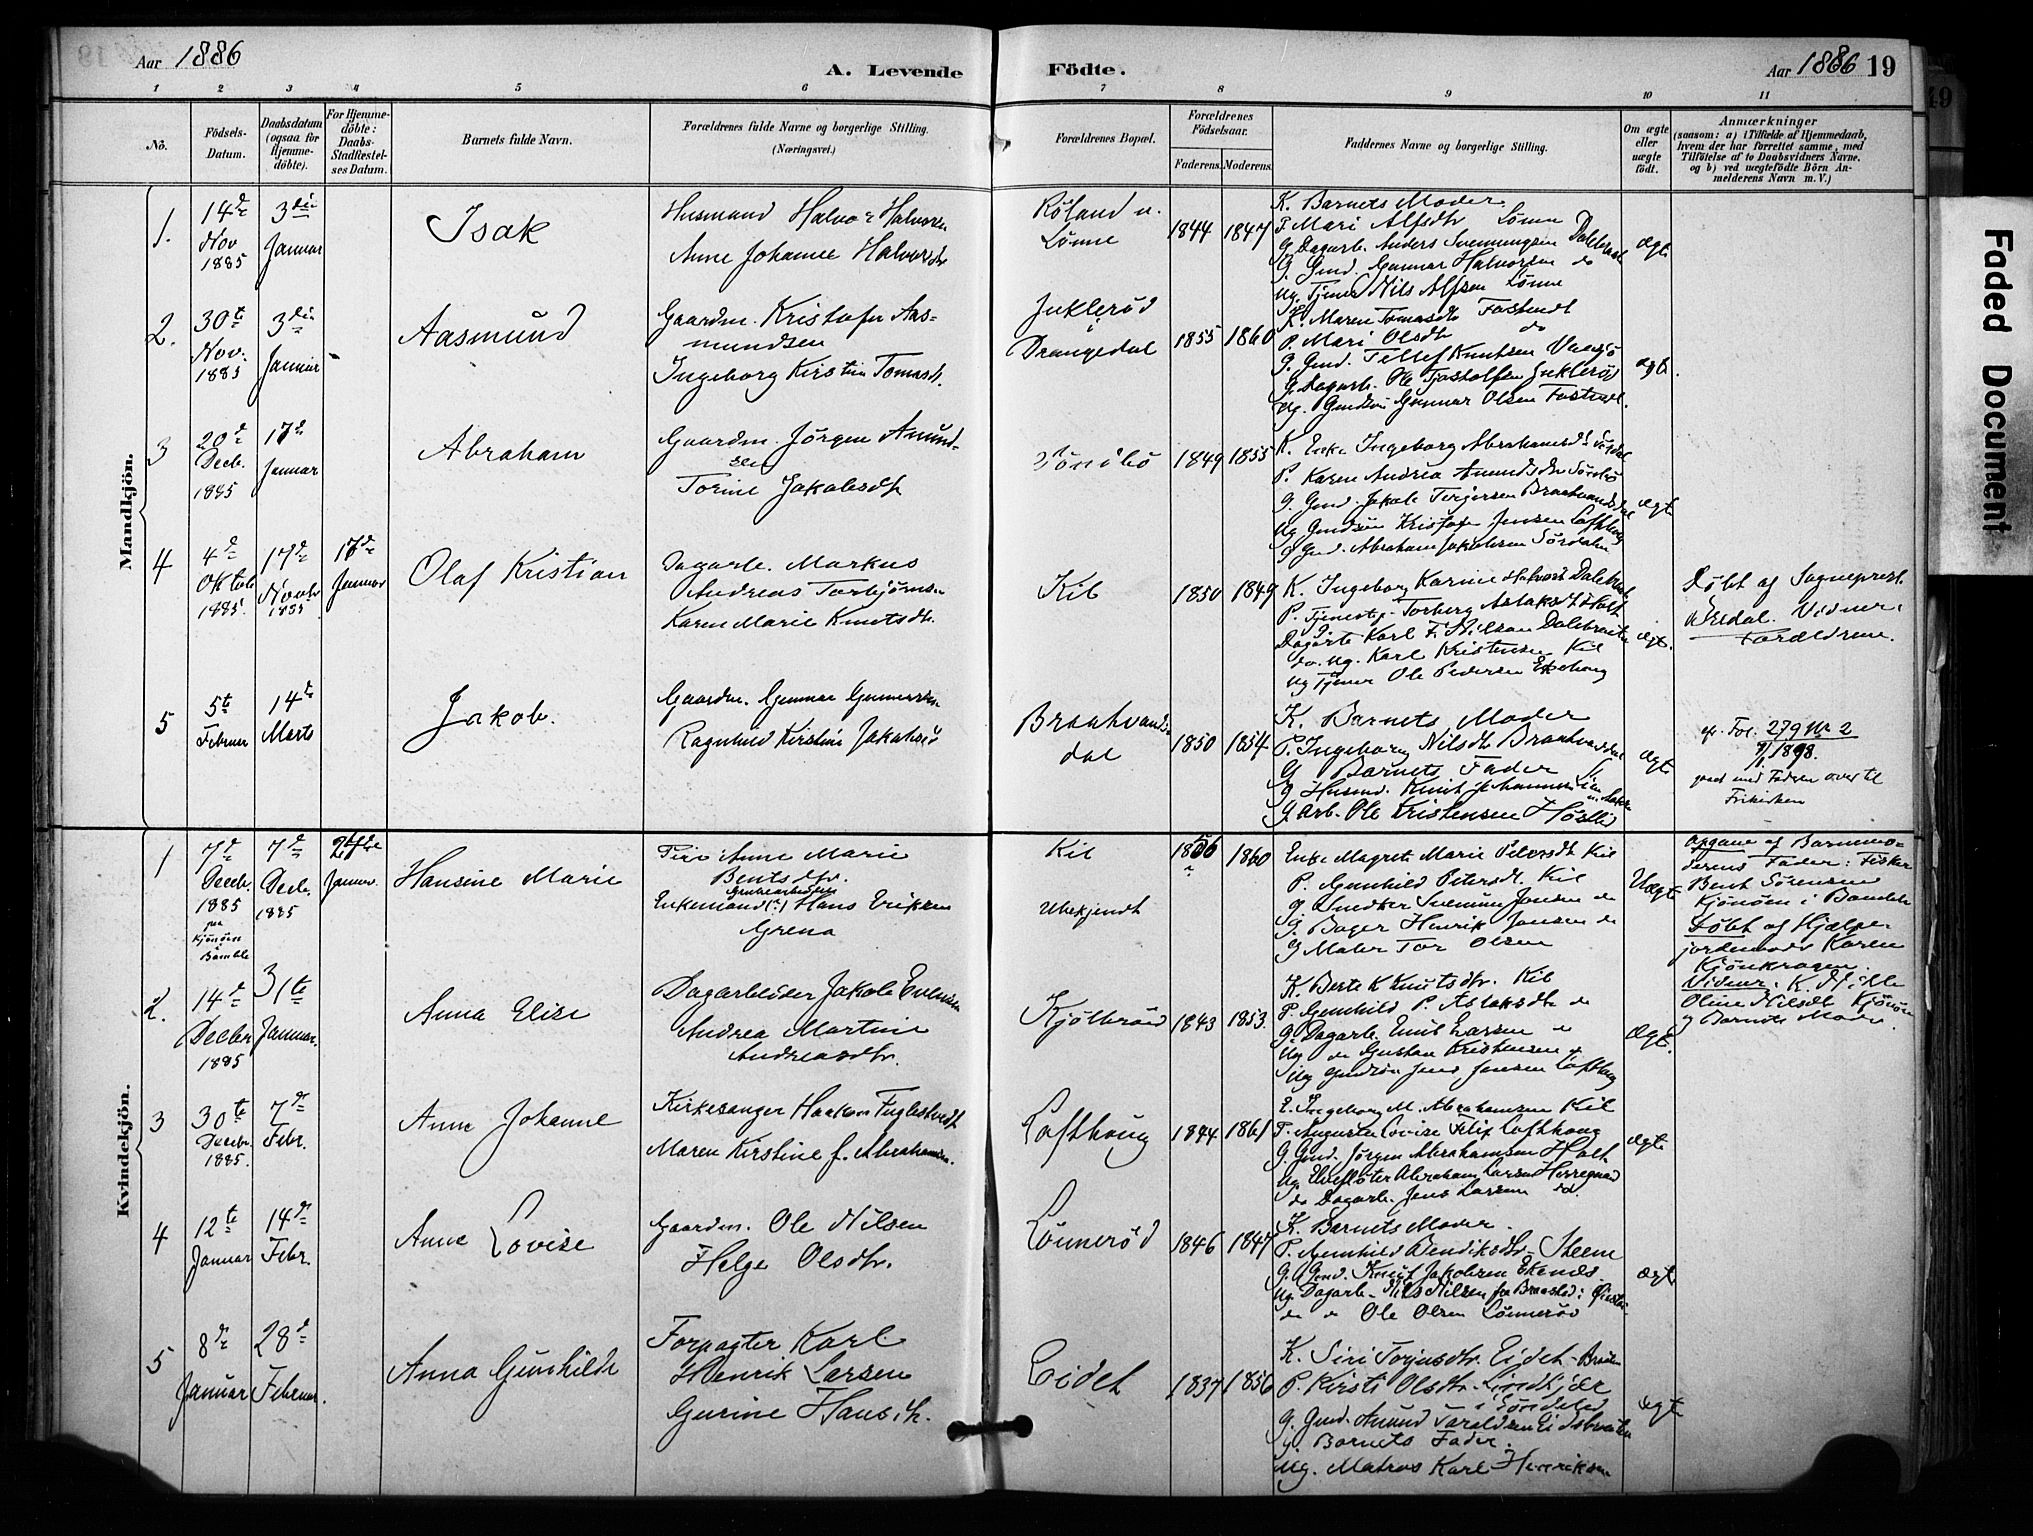 Aar 1886
A. Levende
Födte.
Aar 1886 19
1 2 3 4 5 6 7 8 9 10 11
No.
Födsels-
Datum.
Daabsdatum
(ogsaa for
Hjemme-
döbte).
For Hjemme-
döbte:
Daabs-
Stadfæstel-
ses Datum.
Barnets fulde Navn.
Forældrenes fulde Navne og borgerlige Stilling.
(Næringsvei.)
Forældrenes Bopæl.
Forældrenes
Födselsaar.
Faderens. Moderens.
Faddernes Navne og borgerlige Stilling.
Om ægte
eller
uægte
födt.
Anmærkninger
(saasom: a) i Tilfælde af Hjemmedaab,
hvem der har forrettet samme, med
Tilföielse af to Daabsvidners Navne.
og b) ved uægtefödte Börn An-
melderens Navn m.V.)
Mandkjön.
1.
14de
Nov
1885
3die
Januar
Isak
Husmand Halvor Halvorsen
Anne Johanne Halvorsdtr
Röland u.
Lønne
1844 1847
K. Barnets Moder
P. Mari Alfsdtr Lønne
G. Dagarb. Anders Svenningsen Dalebraat
G. Gmd. Gunnar Halvorsen do
Ug. Tjener Nils Alfsen Lønne
ægte
2.
30te
Nov.
1885
3die
Januar
Aasmund
Gaardm. Kristofer Aas-
mundsen
Ingeborg Kirstin Tomasdtr.
Juklerød
i
Drangedal
1855 1860
K. Maren Tomasdtr Fostvedt
P. Mari Olsdtr do
G. Gmd. Tellef Knutsen
G. Dagarb. Ole Tjostolfsen Juklerød
Ug. Gmdsøn Gunnar Olsen Fostvedt.
ægte.
3
20de
Decb.
1885
17de
Januar
Abraham
Gaardm. Jörgen Amund-
sen
Torine Jakobsdtr
1849 1855
K. Enke Ingeborg Abrahamsdtr
P. Karen Andrea Amundsdtr
G. Gmd. Jakob Terjersen Braatvandsdal
Ug Gmdsøn Kristofer Jensen Lofthoug
G Gmd. Abraham Jakobsen Sördalen
ægte
4
4de
Oktob
1885.
17de
Novbr
1885
17de
Januar
Olaf Kristian
Dagarb. Markus
Andreas Torbjörnsen
Karen Marie Knutsdtr.
Kil
1850 1849
K. Ingeborg Karine Halvorsdtr Dalebraat
P. Tjenestp. Torberg Aslaksdtr Holt
Dagarb Karl F. Nilsen Dalebraaten
do. Ug. Karl Kristensen Kil
Ug Tjener Ole Pedersen
ægte.
Døbt af Sogneprest
Vidner:
Forældrene.
5
5te
Februar
14de
Marts
Jakob.
Gaardm. Gunnar Gunnarsen
Ragnhild Kirstine Jakobsd
Braatvands-
dal
1850 1854
K. Barnets Moder
P. Ingeborg Nilsdtr Braatvandsdal
G Barnets Fader
G Husmd. Knut Johannessen
G. arb. Ole Kristensen
ægte
cfr. Fol. 279 Nr 2
1898.
gaaet med Fadren over til
Frikirken
Kvindekjön.
1
7de
Decb.
1885
paa
Kjönöen
i Bamble
7de
Decb.
1885
24de
Januar.
Hansine Marie
Pige Anne Marie
Bentsdtr.
Grubearbeider
Enkemand (?) Hans Eriksen
Grena
Kil
Ubekjendt
1856 1860
Enke Magrete Marie Petersdtr Kil
P. Gunhild Petersdtr. Kil
G Smedker Svenning Jensen do
G. Bager Henrik Jensen do
G Maler Tor Olsen
Uægte
Opgave af Barnemo-
derens Fader: Fisker
Bent Sörensen
Kjönöen i Bamble
Døbt af Hjælpe-
jordemoder Karen
Kjönkragen.
Vidner: K. Nille
Oline Nilsdtr Kjönöen
og Barnets Moder.
2.
14de
Decber
1885
31te
Januar.
Anna Elise
Dagarbeider Jakob Evensen
Andrea Martine
Andreasdtr.
Kjölbrönd
1843 1853.
K. Berte K Knutsdtr. Kil
P. Gunhild P. Aslaksdtr do
G. Dagarb. Emil Larsen do
Ug do Gustav Kristensen do
Ug Gmdsøn Jens Jensen Lofthoug
Ægte.
3
30te
Decbr
1885.
7de
Febr.
Anne Johanne
Kirkesanger Haakon Fuglestvedt
Maren Kirstine f. Abrahamsen.
Lofthoug
1844. 1861
E. Ingeborg M. Abrahamsen Kil
P. Augusta Lovise Felix Lofthoug
G. Gmd. Jörgen Abrahamsen Holt
Ug. Elvefløter Abraham Larsen Herregaard
do Dagarb. Jens Larsen do.
ægte
4
12te
Januar
14de
Febr.
Anne Lovise
Gaardm. Ole Nilsen
Helge Olsdtr.
Lönnerød
1846 1847
K. Barnets Moder.
P. Gunhild Bendiksdtr. Steene
G. Gmd. Knut Jakobsen Ekenes
Ug. Dagarb. Nils Nilsen fra Braasted i
do do Ole Olsen Lönnerød
ægte
5
8de
Januar
28de
Februar.
Anna Gunhilde
Forpagter Karl
Henrik Larsen
Gurine Hansdtr.
Eidet
1837 1856
K. Siri Torjusdtr. Eidet
P. Kirsti Olsdtr. Lindkjær
i Söndeled
G. Gmd. Amund Taraldsen Eidsbraaten
G. Barnets Fader.
Ug. Matros Karl Henriksen
ægte
Faded Document